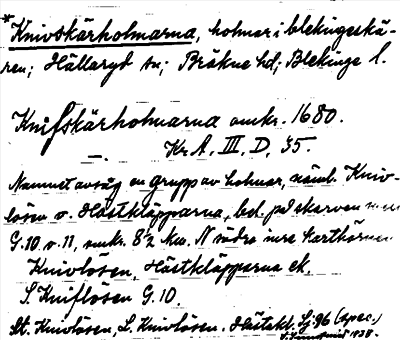 * Knivskärholmarna, holmar i blekingeskä-
ren; Hällaryd sn; Bräkne hd; Blekinge l.
Knifskärholmarna omkr. 1680.
Kr.A. III, D, 35.
Namnet avsåg en grupp av holmar, näml. Kniv-
lösen o. Hästkläpparna, bel. på skarven
G.10 o. 11, omkr. 8½ N södra inre karthörnen
Knivlösen, Hästkläpparna ek.
S. Kniflösen G. 10.
St. Knivlösen, L. Knivlösen. Hästekl. Sj: 96 (spec.)
1938.